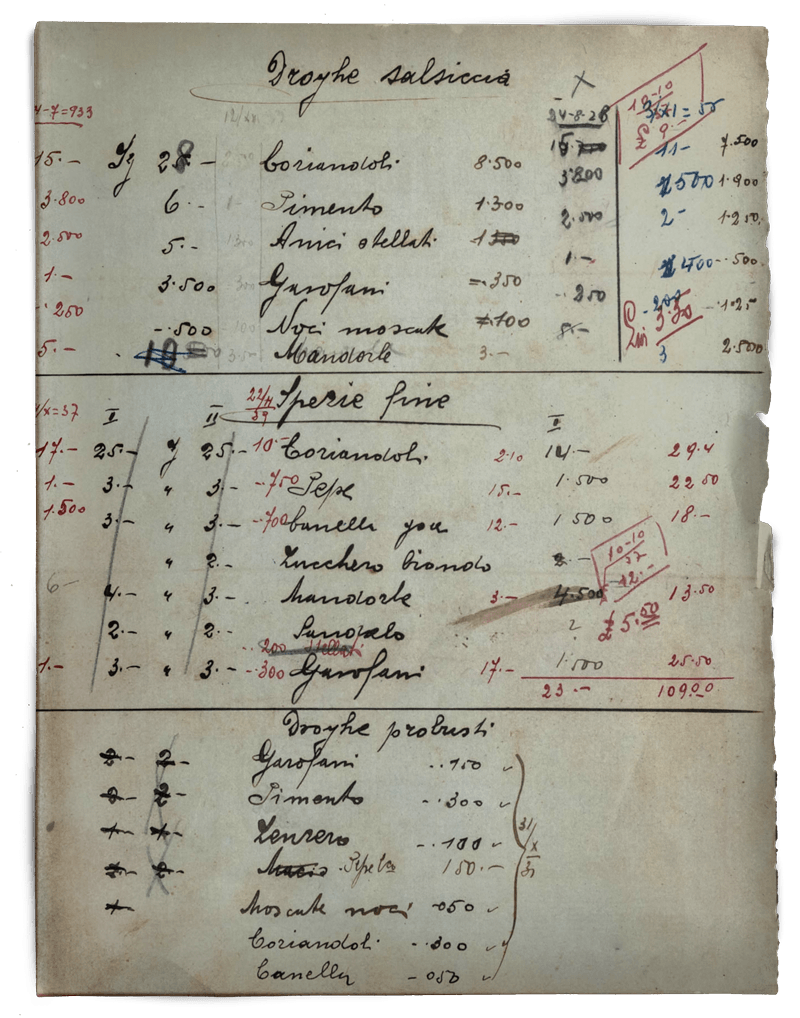 Droghe salsiccia
X
4-7=933 24-8-28 18-10
£ 9.-
15.- Kg 28 - Coriandoli 8.500 11- 7.500
3.800 6.- Pimento 1.300 3.800 1500 1.900
2.500 5.- Anici stellati 2.500 2- 1.250
1.- 3.500 Garofani =.350 1.- 400- -.500
-.250 -.500 Noci moscate =.100 -.250 -200 -.125
5.- 10 Mandorle 3.- 8.- 3 2.500
Lui 3.30
/x=37 I II 22/11 39 Spezie fine II
17.- 25.- Kg 25.- 10.- Coriandoli 2.10 14.- 29.4
1.- 3.- " 3.- -.750 Pepe 15.- 1.500 22.50
1.500 3.- " 3.- -.700 Canella goa 12.- 1.500 18.-
" 2.- Zucchero biondo 2.-
10-10
37
12.-
6- 4.- " 3.- Mandorle 3.- 4.500 13.50
£ 5.50
2.- " 2.- Sandalo ?
-.200 Stellati
1.- 3.- " 3.- -.300 Garofani 17.- 1.500 25.50
23.- 109.00
Droghe probusti
2- 2- Garofani -.150
2- 2- Pimento -.300
1- 1- Zenzero -.100
2- 2- Macis Pepe 150.-
1- Moscate noci 050
Coriandoli -.300
Canella -050
31/X